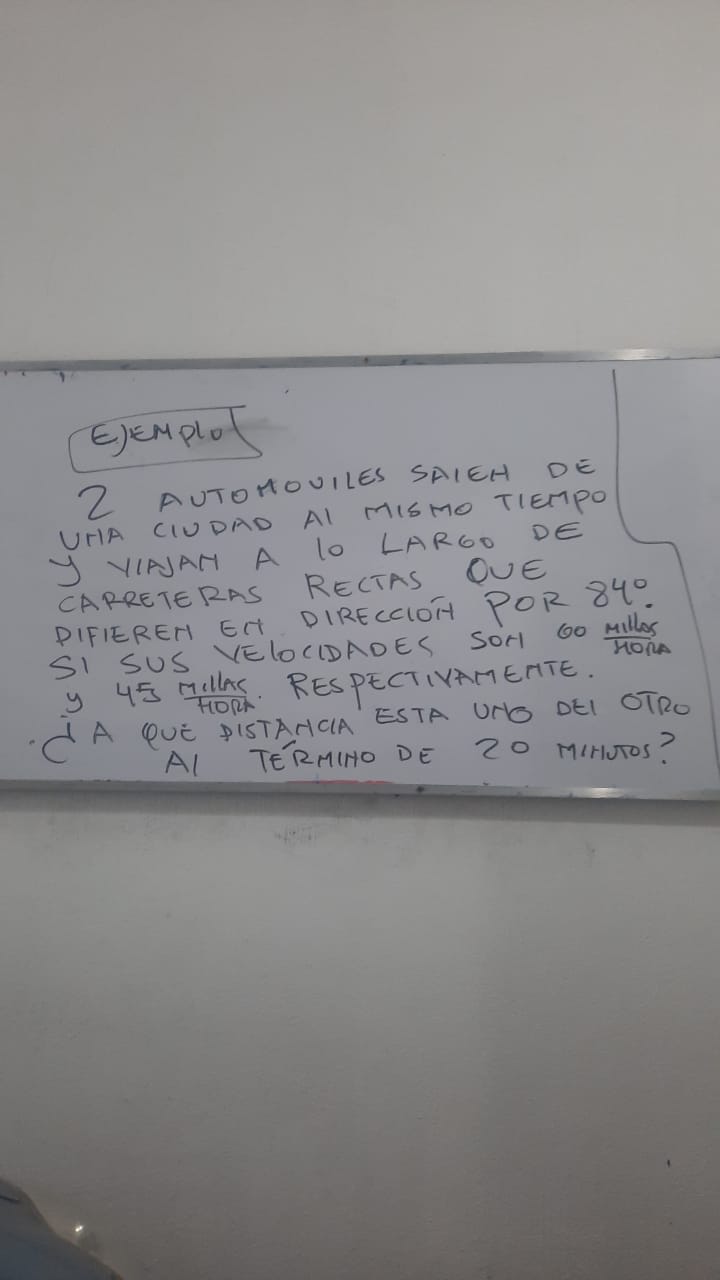 EJEMPLO
2 AUTOMOVILES SALEN DE
UNA CIUDAD Al MISMO TIEMPO
Y VIAJAN A lo LARGO DE
CARRETERAS RECTAS QUE
DIFIEREN EN DIRECCIÓN POR 84°.
SI SUS VELOCIDADES SON 60 MILLAS/HORA
y 45 MILLAS/HORA. RESPECTIVAMENTE.
¿A QUÉ DISTANCIA ESTA UNO DEl OTRO
Al TÉRMINO DE 20 MINUTOS?